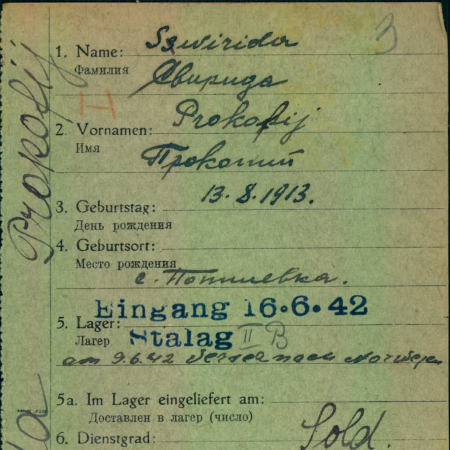 3
1. Name: Sswirida
Фамилия Свирида
2. Vornamen: Prokofij
Имя Прокопий
13.8.1913.
3. Geburtstag:
День рождения
4. Geburtsort:
Место рождения
с.
Eingang 16.6.42
5. Lager: Stalag II B
Лагерь
am 9.6.42 nach Norwegen
5a. Im Lager eingeliefert am:
Доставлен в лагерь (число)
6. Dienstgrad: Sold.
Prokofij